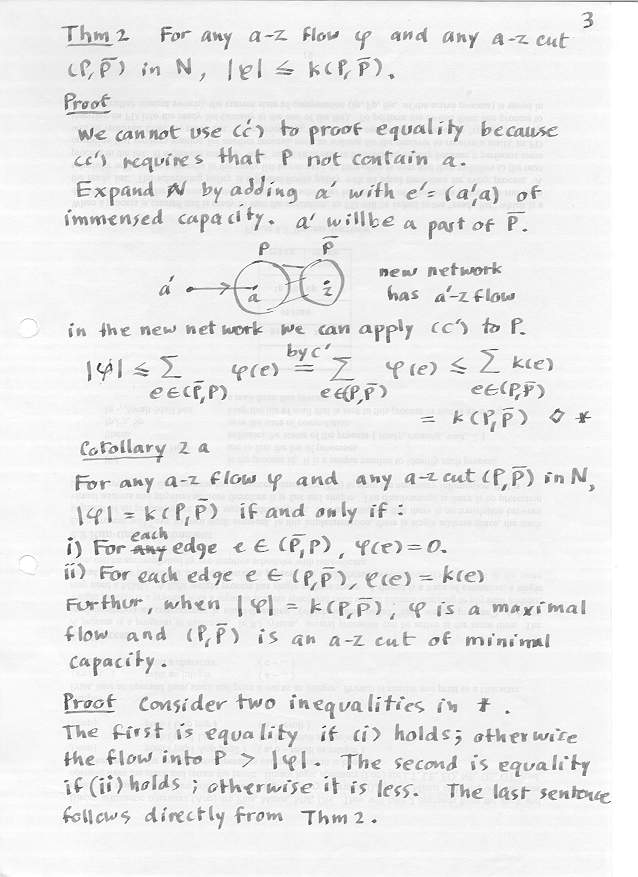 3
Thm 2 For any a-z flow φ and any a-z cut
(P, P̄) in N, |φ| ≤ k(P, P̄).
Proof
We cannot use (c') to proof equality because
(c') requires that P not contain a.
Expand N by adding a' with e' = (a',a) of
immensed capacity. a' will be a part of P̄.
P P̄
a' a z
new network
has a'-z flow
in the new net work we can apply (c') to P.
|φ| ≤ Σ φ(e) = Σ φ(e) ≤ Σ k(e)
by c'
e∈(P̄,P) e∈(P,P̄) e∈(P,P̄)
= k(P, P̄) ◇ *
Corollary 2 a
For any a-z flow φ and any a-z cut (P, P̄) in N,
|φ| = k(P, P̄) if and only if :
each
i) For any edge e ∈ (P̄, P), φ(e) = 0.
ii) For each edge e ∈ (P, P̄), φ(e) = k(e)
Furthur, when |φ| = k(P, P̄), φ is a maximal
flow and (P, P̄) is an a-z cut of minimal
capacity.
Proof Consider two inequalities in *.
The first is equality if (i) holds; otherwise
the flow into P > |φ|. The second is equality
if (ii) holds ; otherwise it is less. The last sentence
follows directly from Thm 2.